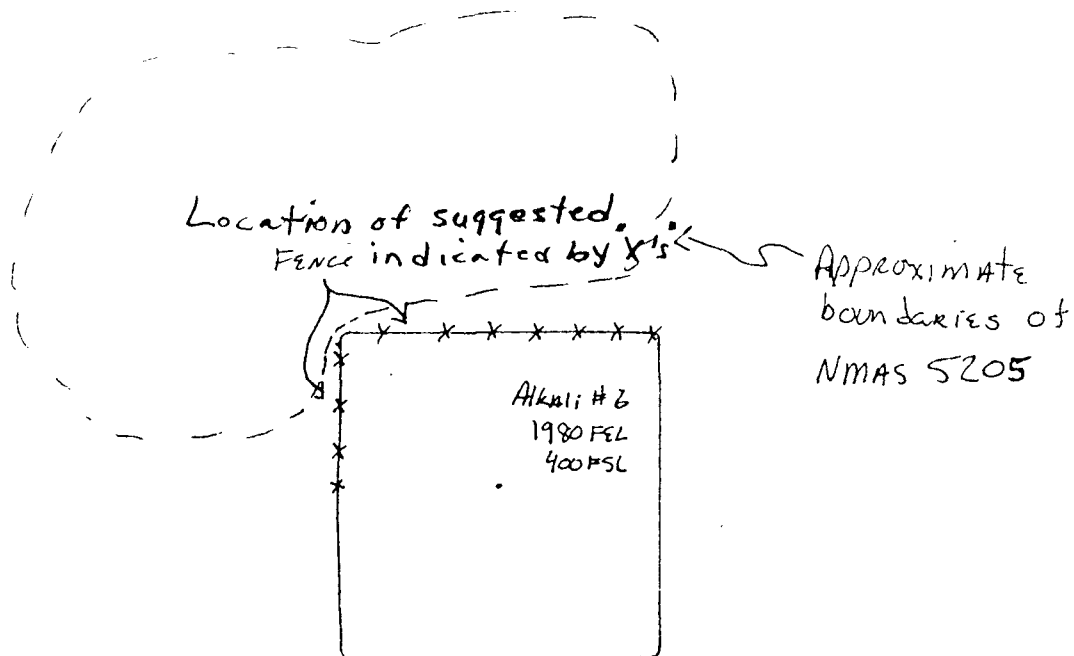 Location of suggested
FENCE indicated by X's
Approximate
boundaries of
NMAS 5205
Alkali # 6
1980 FEL
400 FSL